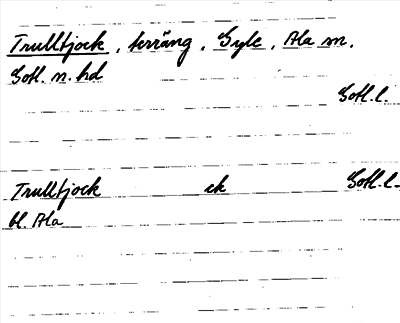 Trulltjock, terräng, Gyle, Ala sn.
Gotl. n. hd
Gotl. l.
Trulltjock ck Gotl. l.
bl. Ala